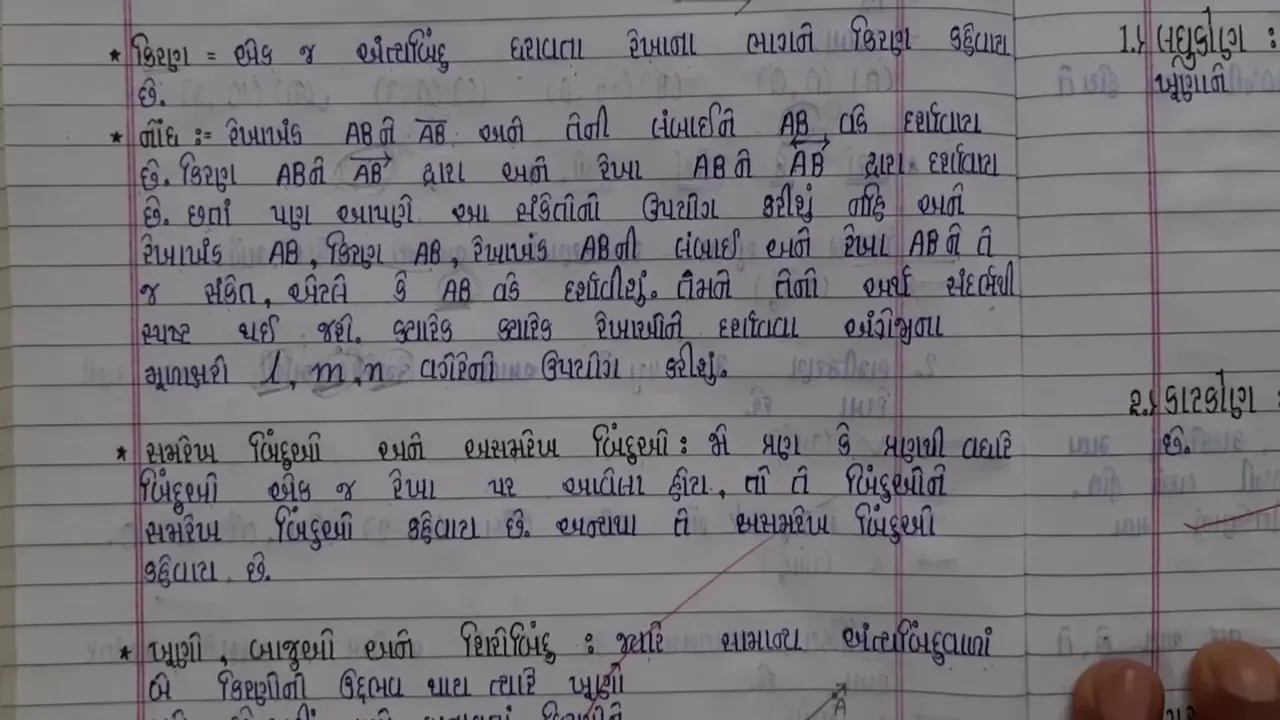 * કિરણ = એક જ અંત્યબિંદુ ધરાવતા રેખાના ભાગને કિરણ કહેવાય
છે.
* નોંધ := રેખાખંડ ABને AB અને તેની લંબાઈને AB વડે દર્શાવાય
છે. કિરણ ABને AB દ્વારા અને રેખા ABને AB દ્વારા દર્શાવાય
છે. છતાં પણ આપણે આ સંકેતોનો ઉપયોગ કરીશું નહિ અને
રેખાખંડ AB, કિરણ AB, રેખાખંડ ABની લંબાઈ અને રેખા AB ને તે
જ સંકેત, એટલે કે AB વડે દર્શાવીશું. તમને તેનો અર્થ સંદર્ભથી
સ્પષ્ટ થઈ જશે. ક્યારેક ક્યારેક રેખાઓને દર્શાવવા અંગ્રેજીના
મૂળાક્ષરો l, m, n વગેરેનો ઉપયોગ કરીશું.
* સમરેખ બિંદુઓ અને અસમરેખ બિંદુઓ : જો ત્રણ કે ત્રણથી વધારે
બિંદુઓ એક જ રેખા પર આવેલા હોય, તો તે બિંદુઓને
સમરેખ બિંદુઓ કહેવાય છે. અન્યથા તે અસમરેખ બિંદુઓ
કહેવાય છે.
* ખૂણો, બાજુઓ અને શિરોબિંદુ : જ્યારે સામાન્ય અંત્યબિંદુવાળાં
બે કિરણોનો ઉદ્ભવ થાય ત્યારે ખૂણો
A
1.} લઘુકોણ :
ખૂણાને
2.} કાટકોણ :
છે.